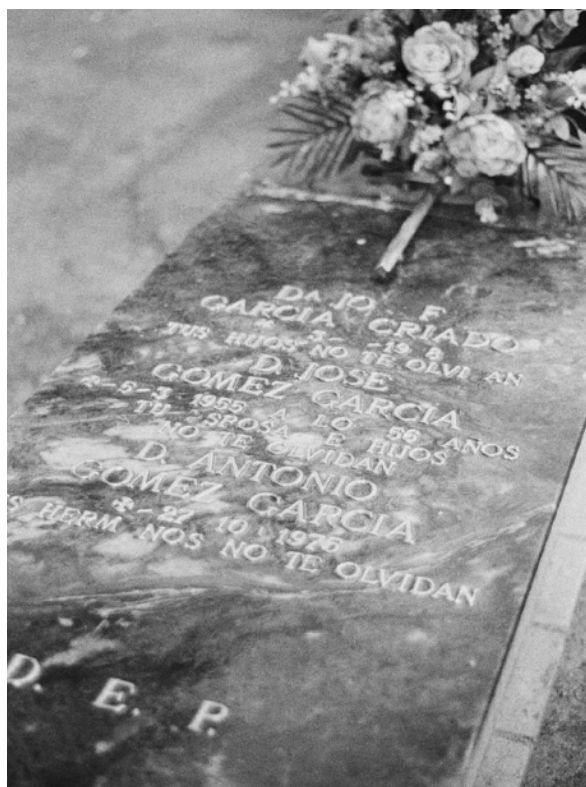 Dª JO F
GARCIA CRIADO
TUS HIJOS NO TE OLVI AN
D. JOSE
GOMEZ GARCIA
-5-3 1955 A LO 56 AÑOS
TU SPOSA E HIJOS
NO TE OLVIDAN
D. ANTONIO
GOMEZ GARCIA
- 27 10 1975
S HERM NOS NO TE OLVIDAN
D. E. P.